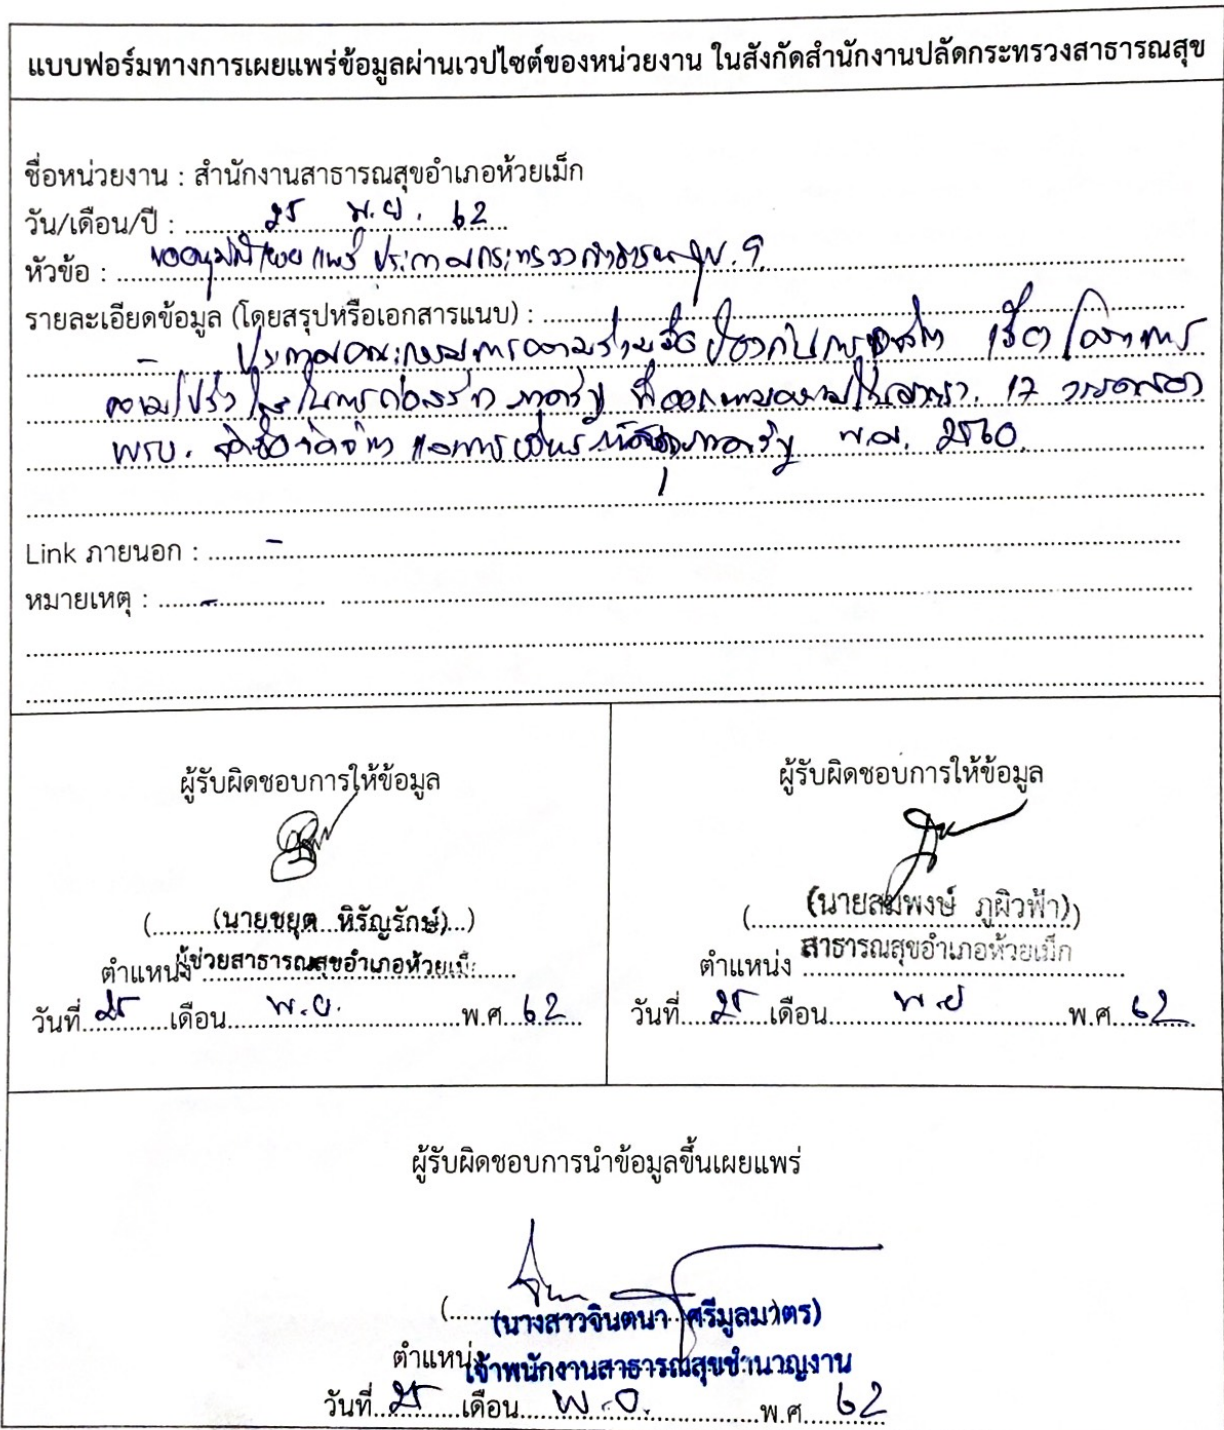 แบบฟอร์มทางการเผยแพร่ข้อมูลผ่านเวปไซต์ของหน่วยงาน ในสังกัดสำนักงานปลัดกระทรวงสาธารณสุข
ชื่อหน่วยงาน : สำนักงานสาธารณสุขอำเภอห้วยเม็ก
วัน/เดือน/ปี : 25 พ.ย. 62
หัวข้อ : ขออนุมัติเผยแพร่ ประกาศกระทรวงสาธารณสุข
รายละเอียดข้อมูล (โดยสรุปหรือเอกสารแนบ) :
ประกาศคณะกรรมการความร่วมมือป้องกันการทุจริต เรื่อง โครงการ
ความโปร่งใสในการก่อสร้างภาครัฐ ที่ออกตามความในมาตรา 17 วรรคสอง
พรบ. จัดซื้อจัดจ้าง และการบริหารพัสดุภาครัฐ พ.ศ. 2560
Link ภายนอก : -
หมายเหตุ : -
ผู้รับผิดชอบการให้ข้อมูล
((นายชยุต หิรัญรักษ์))
ตำแหน่ง ผู้ช่วยสาธารณสุขอำเภอห้วยเม็ก
วันที่ 25 เดือน พ.ย. พ.ศ. 62
ผู้รับผิดชอบการให้ข้อมูล
((นายสมพงษ์ ภูผิวฟ้า))
ตำแหน่ง สาธารณสุขอำเภอห้วยเม็ก
วันที่ 25 เดือน พ.ย พ.ศ. 62
ผู้รับผิดชอบการนำข้อมูลขึ้นเผยแพร่
((นางสาวจินตนา ศรีมูลมาตร)
ตำแหน่ง เจ้าพนักงานสาธารณสุขชำนาญงาน
วันที่ 25 เดือน พ.ย. พ.ศ. 62